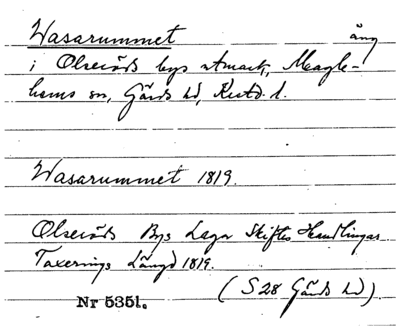 Wasarummet äng
i Olseröds bys utmark, Magle-
hems sn, Gärds hd, Krstd. l.
Wasarummet 1819.
Olseröds Bys Laga Skiftes Handlingar
Taxerings Längd 1819.
(S28 Gärds hd)
Nr 5351.